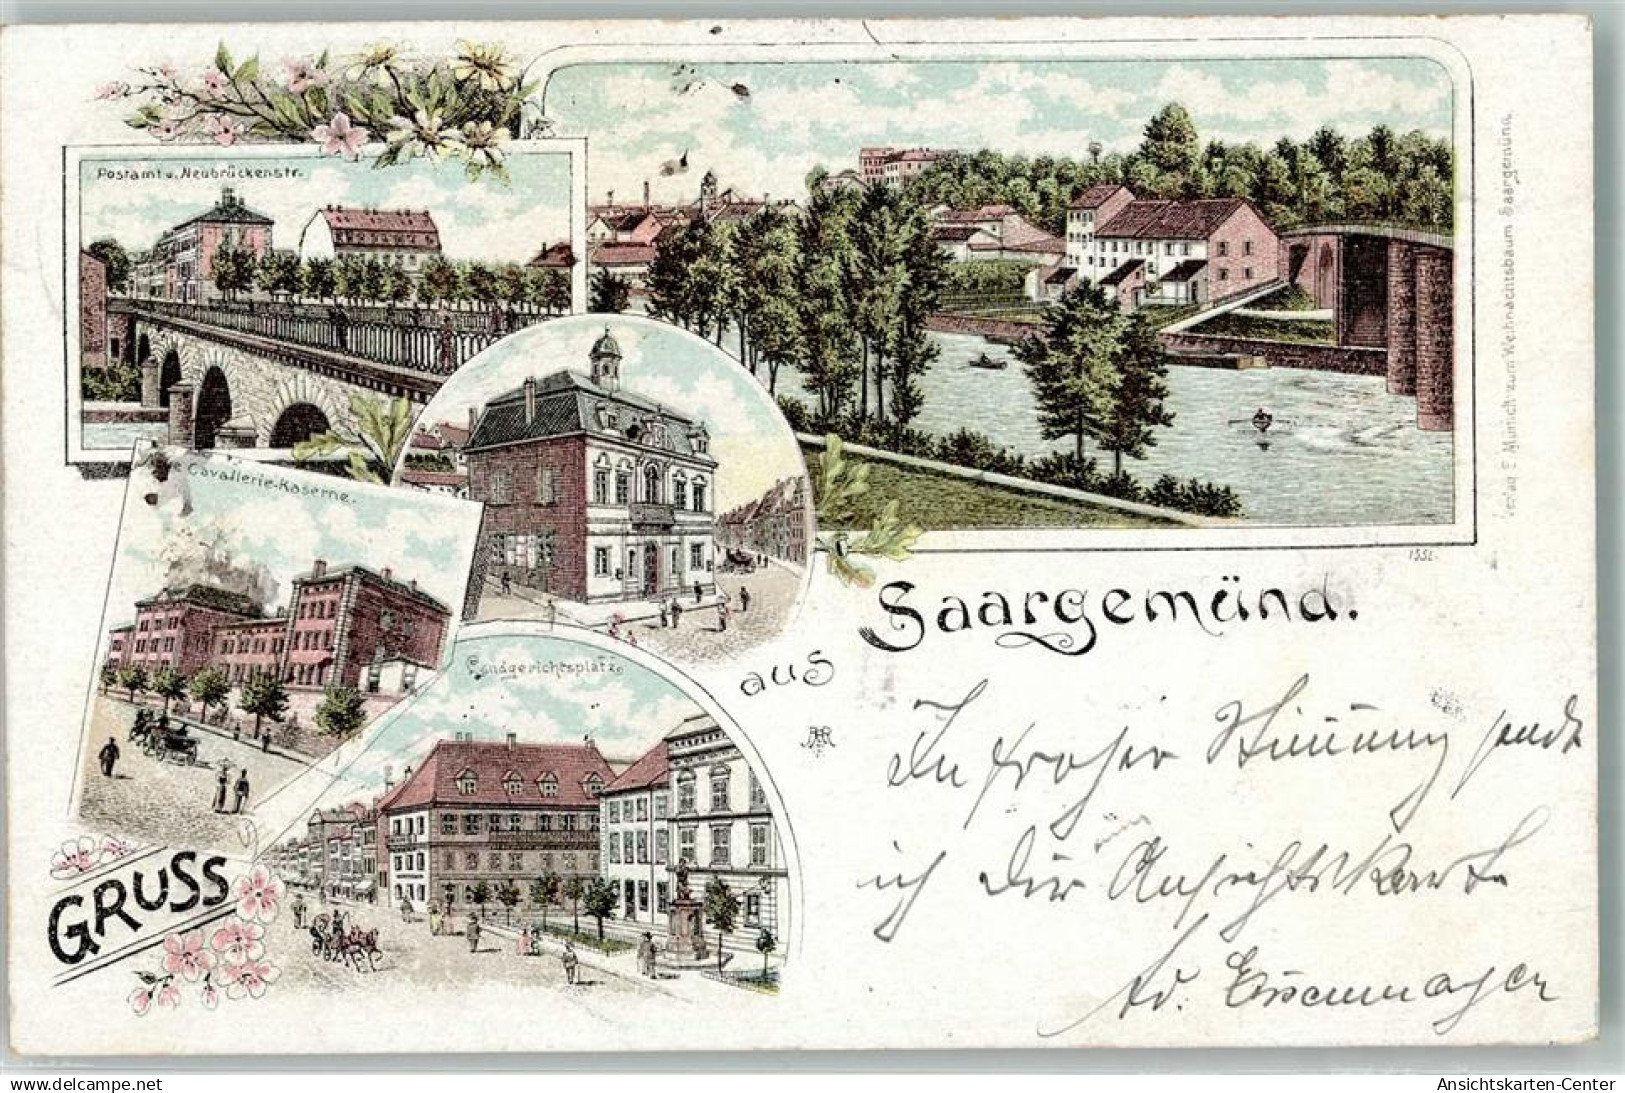 Postamt u. Neubrückenstr.
Cavallerie-Kaserne.
Landgerichtsplatz.
GRUSS
aus
Saargemünd.
1551.
Verlag E. Munich zum Weihnachtsbaum Saargemünd.
In froher Stimmung sendt
ich dir Ansichtskarte
Ed. Eisenmayer
www.delcampe.net
Ansichtskarten-Center